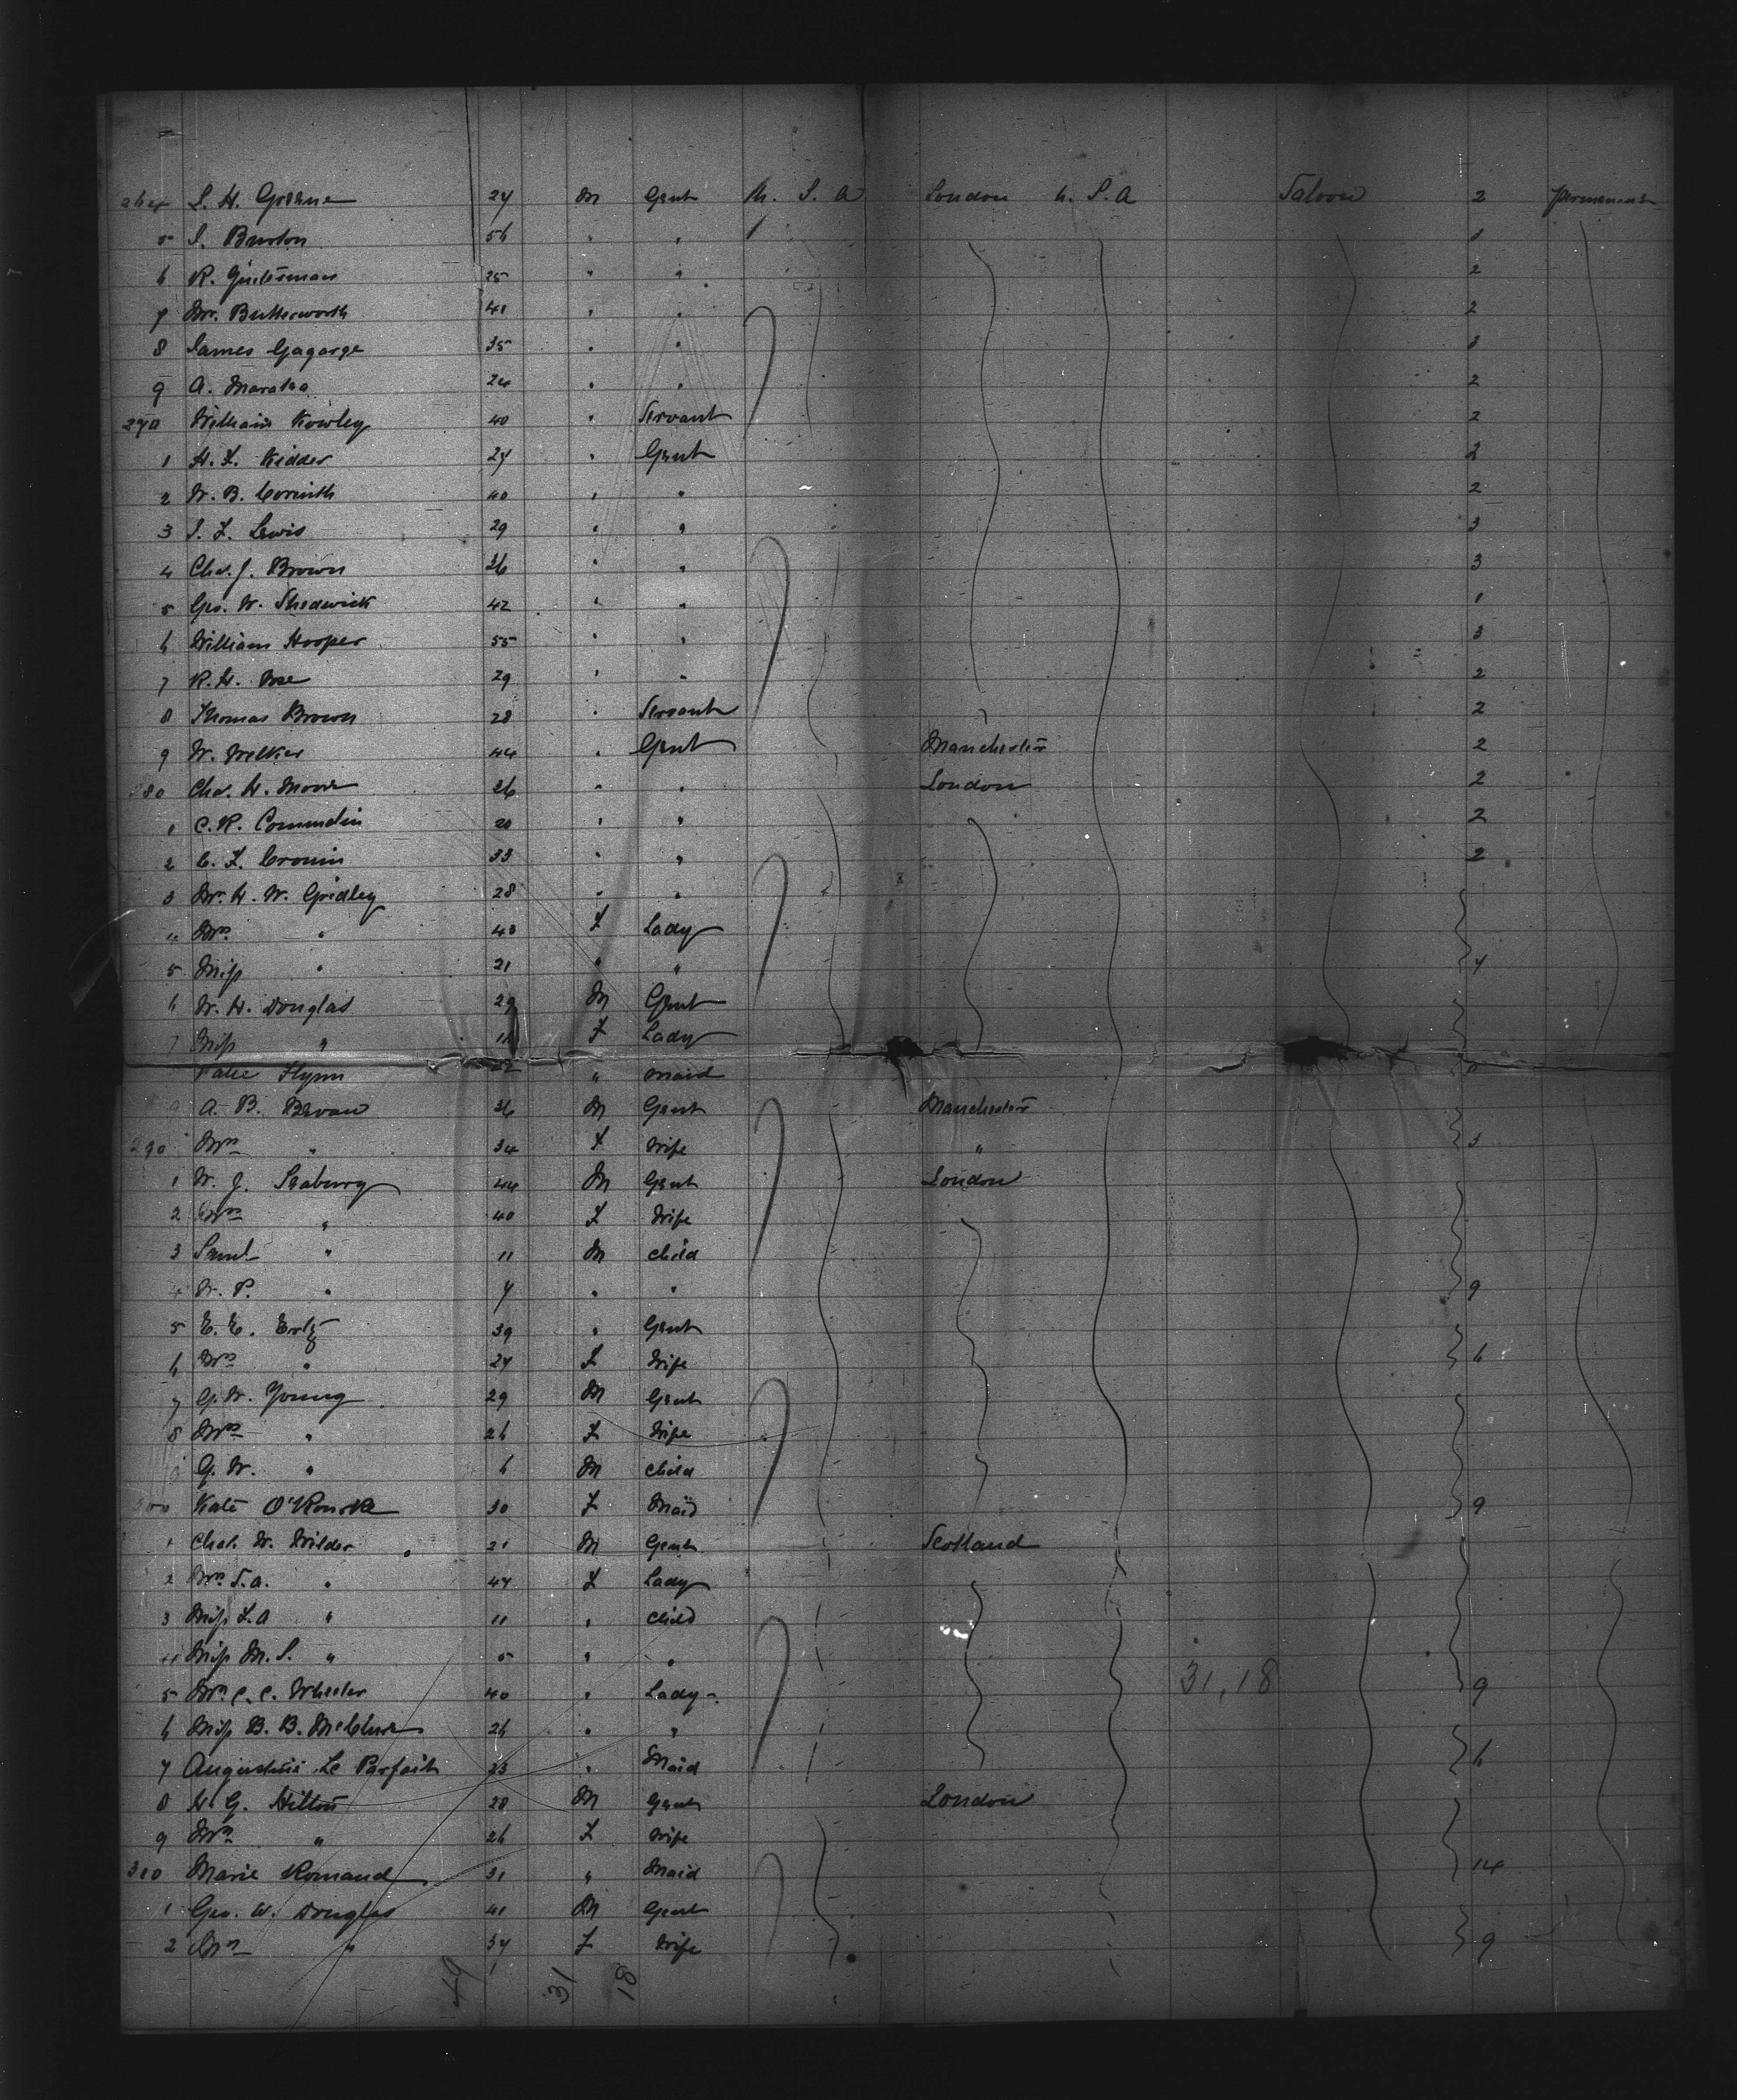 264 S. H. Greene 27 M Gent U. S. A London U. S. A Saloon 2 permanent
5 S. Burton 56 " " 1
6 R. 25 " " 2
7 Mr. Butterworth 41 " " 2
8 James Gagarge 35 " "
9 A. 24 " " 2
270 William Kowley 40 " Servant 2
1 H. F. Kidder 27 " Gent 2
2 W. B. Corinth 40 " " 2
3 S. F. Lewis 29 " " 3
4 Chs. J. Brown 36 " " 3
5 Geo. W. Shedwick 42 " " 1
6 William Hooper 55 " " 3
7 R. H. 29 " " 2
8 Thomas Brown 28 " Servant 2
9 W. Welker 44 " Gent Manchester 2
280 Chs. H. Moore 26 " " London 2
1 C. R. 20 " " 2
2 C. F. Cronin 33 " " 2
3 Mr. H. W. Gridley 28 " "
4 Mrs " 43 F Lady
5 Miss " 21 " " 7
6 W. H. Douglas 29 M Gent
7 Miss " 11 F Lady
Flynn 22 " maid
9 A. B. Bevan 36 M Gent Manchester
290 Mrs " 34 F Wife " 3
1 W. J. Seabury 44 M Gent London
2 Mrs " 40 F Wife
3 Saml " 11 M child
4 W. P. " 7 " " 9
5 E. E. Ertz 39 " Gent
6 Mrs " 27 F Wife 6
7 G. W. Young 29 M Gent
8 Mrs " 26 F Wife
9 G. W. " 6 M child
300 Kate O'Rourke 30 F Maid 9
1 Chas. W. Wilder 21 M Gent Scotland
2 Mrs S. A. " 47 F Lady
3 Miss F. A " 11 " child
4 Miss M. S. " 5 " "
5 Mrs C. C. Wheeler 40 " Lady 31,18 9
6 Miss B. B. McClure 26 " "
7 Augustine Le Parfait 23 " Maid 6
8 H. G. Hilton 28 M Gent London
9 Mrs " 26 F Wife
310 Marie Romand 31 " Maid 14
1 Geo. W. Douglas 41 M Gent
2 Mrs " 37 F Wife 9
49 31 18